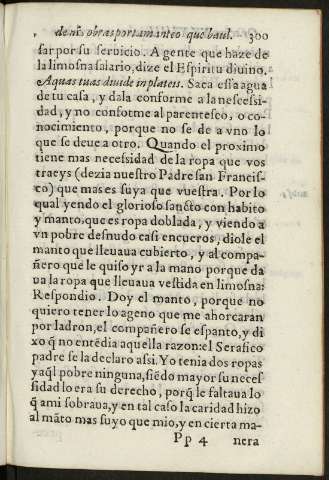 de nr̃s obras por tamanteo que baul. 300
sar por su seruicio. A gente que haze de
la limosna salario, dize el Espiritu diuino.
Aquas tuas diuide in plateis. Saca essa agua
de tu casa, y dala conforme a la nescessi-
dad, y no conforme al parentesco, o co-
nocimiento, porque no se de a vno lo
que se deue a otro. Quando el proximo
tiene mas necessidad de la ropa que vos
traeys (dezia nuestro Padre san Francis-
co) que mas es suya que vuestra. Por lo
qual yendo el glorioso sancto con habito
y manto, que es ropa doblada, y viendo a
vn pobre desnudo casi encueros, diole el
manto que lleuaua cubierto, y al compa-
ñero que le quiso yr a la mano porque da
ua la ropa que lleuaua vestida en limosna:
Respondio. Doy el manto, porque no
quiero tener lo ageno que me ahorcaran
por ladron, el compañero se espanto, y di
xo q̃ no entēdia aquella razon: el Serafico
padre se la declaro assi. Yo tenia dos ropas
y aq̃l pobre ninguna, siēdo mayor su neces
sidad lo era su derecho, porq̃ le faltaua lo
q̃ ami sobraua, y en tal caso la caridad hizo
al mãto mas suyo que mio, y en cierta ma-
Pp 4 nera